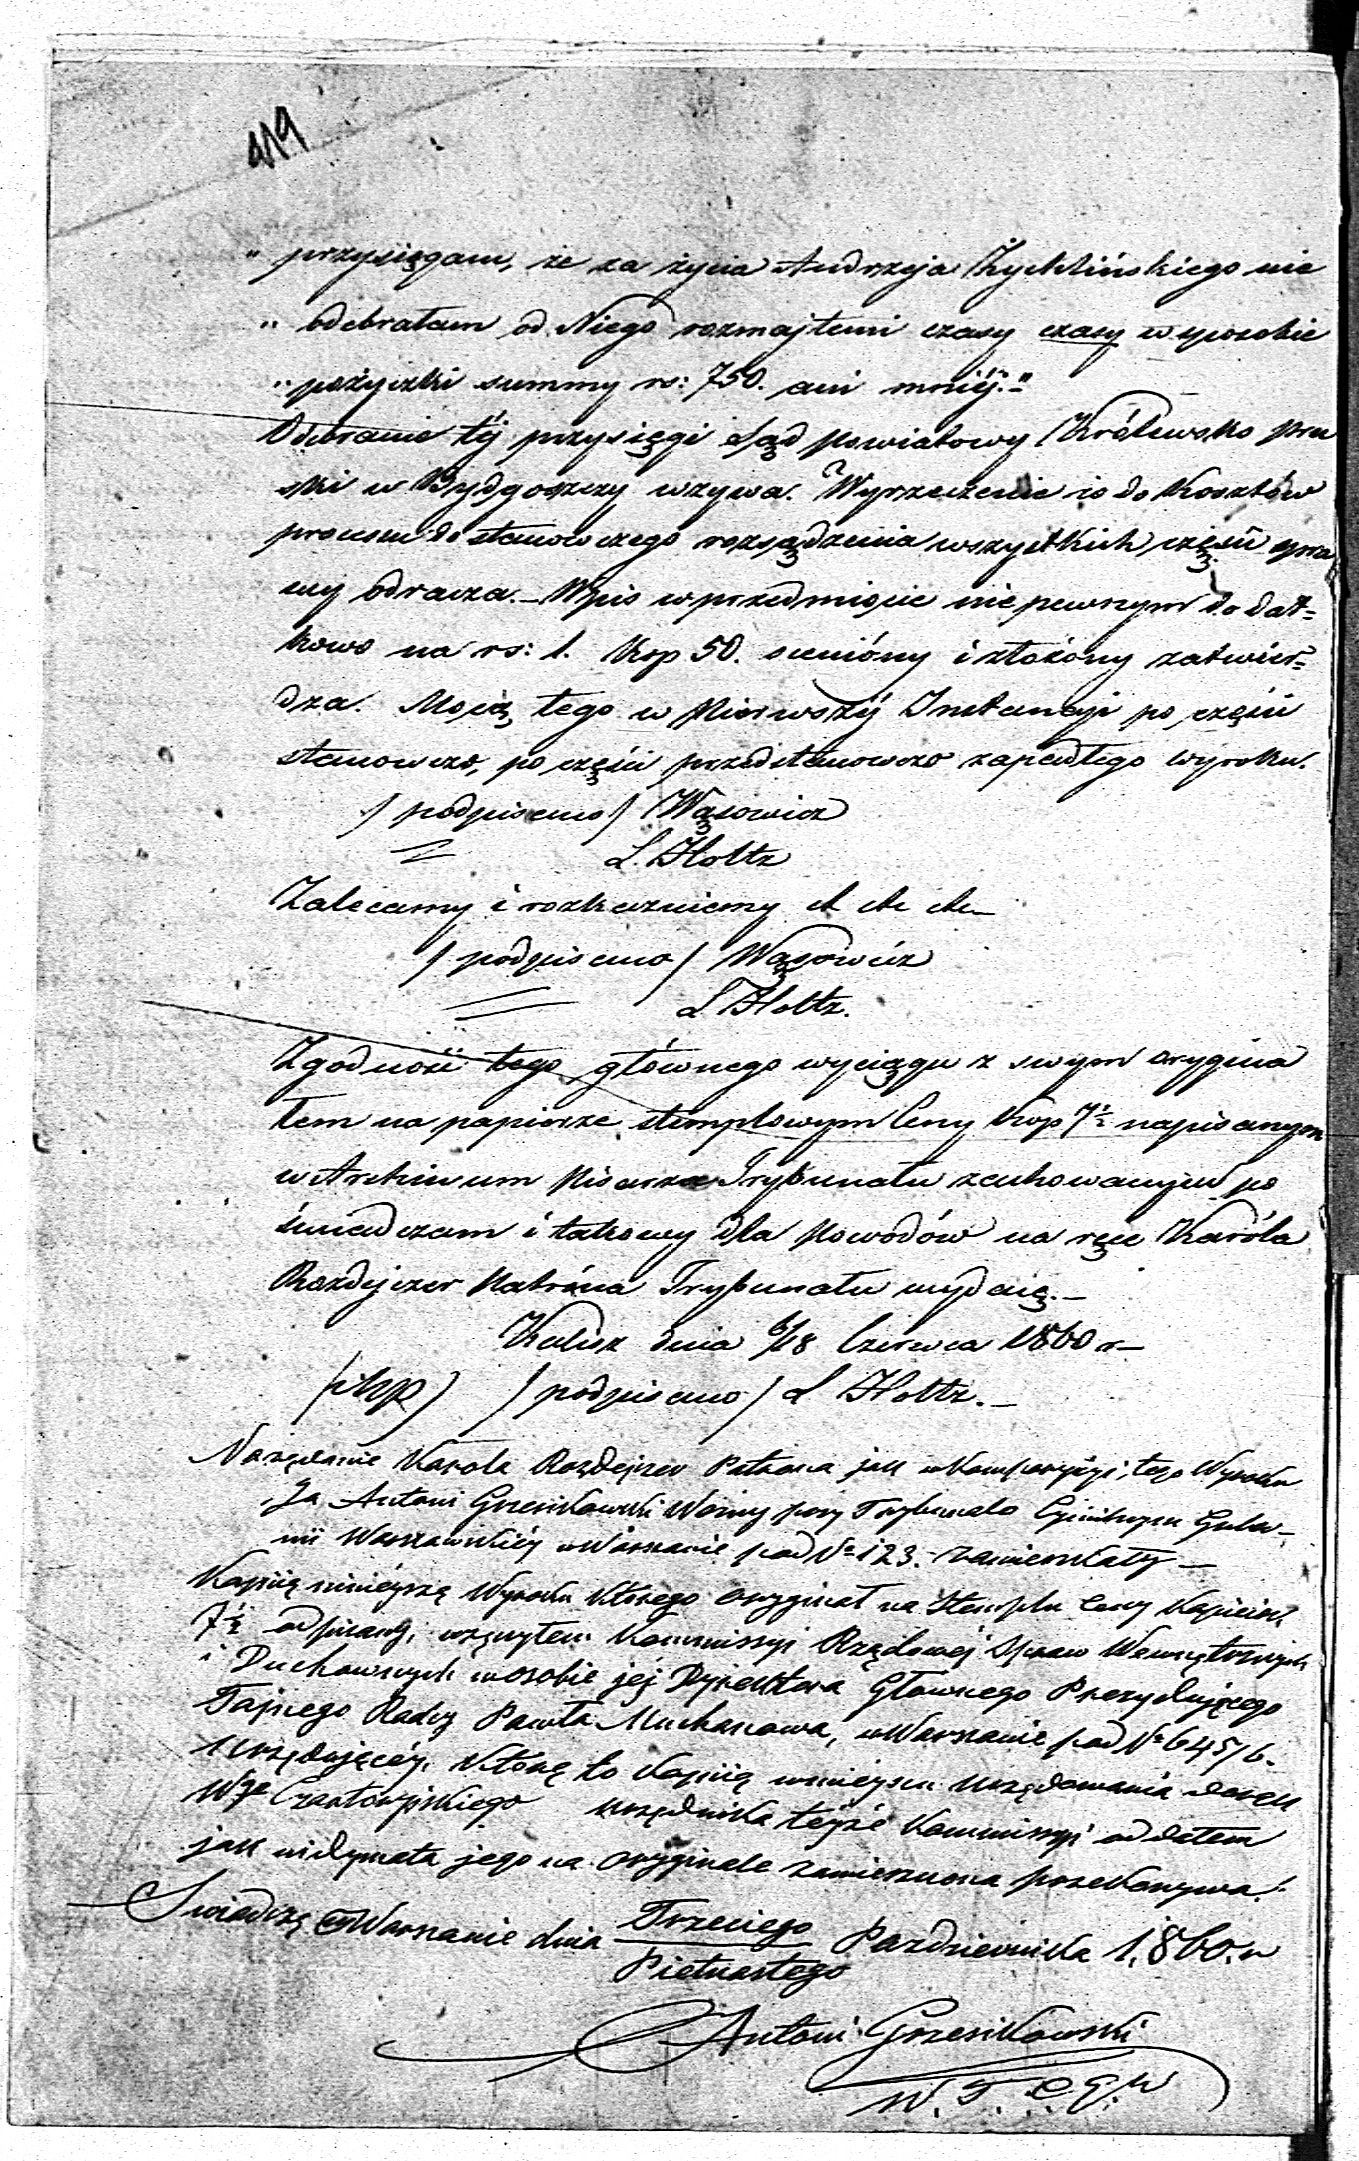 419
„ przysięgam, że za życia Andrzeja Żychlińskiego nie
„ odebrałam od Niego rozmajtemi czasy czasy w sposobie
„ pożyczki summy rs: 750. ani mniéj."
Odebranie téj przysięgi Sąd powiatowy Królewsko pru
ski w Bydgoszczy wzywa. Wyrzeczenie co do kosztów
processu do stanowczego rozsądzenia wszystkich części spra
wy odracza. – Wpis w przedmiocie nie pewnym dodat=
kowo na rs: 1. kop 50. oceniony i złożony zatwier=
dza. Mocą tego w Pierwszéj Instancyi po części
stanowczo, po części przedstanowczo zapadłego wyroku.
/ podpisano / Wąsowicz
= L. Holtz
Zalecamy i rozkazujemy et etc etc –
/ podpisano / Wąsowicz
= L Holtz.
Zgodność tego głównego wyciągu z swym orygina
łem na papierze stemplowym Ceny kop 7½ napisanym
w Archiwum Pisarza Trybunału zachowanym po
świadczam i takowy dla Powodów na ręce Karóla
Rozdejczer Patróna Trybunału wydaję. –
Kalisz dnia 6/18 Czerwca 1860 r –
/ podpisano / L Holtz. –
Na żądanie Karola Rozdejczer Patrona jak w komparycyi tego Wyroku
Ja Antoni Grzesikowski Woźny przy Trybunale Cywilnym Guber–
nii Warszawskiéj w Warszawie pod No 123. zamieszkały –
Kopiią niniejszą Wyroku którego oryginał na Stemplu Ceny Kopiejek
7½ odpisany, wręczyłem Kommissyi Rządowéj Spraw Wewnętrznych
i Duchownych w osobie jéj Dyrektora Głównego Prezydującego
Tajnego Radcy Pawła Muchanowa, w Warszawie pod No 645/6.
urzędującéj, którą to kopiią w miejscu urzędowania
Wgo Czartoryjskiego urzędnika tejże Kommissyi oddałem
jak widymata jego na oryginale zamieszczona przekonywa.
Świadczę w Warszawie dnia Trzeciego
Piętnastego Października 1.860. r
Antoni Grzesikowski
W. T. C. G. W